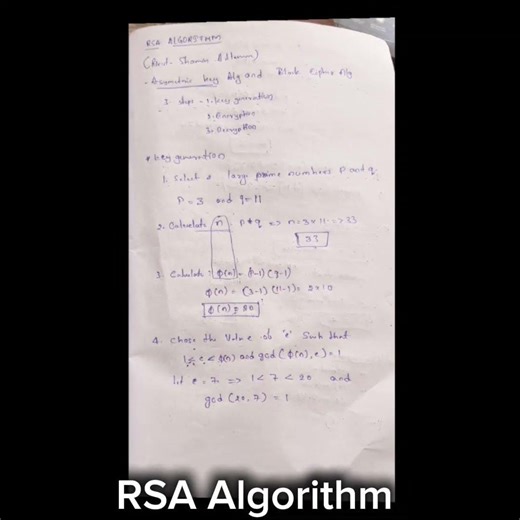 RSA ALGORITHM
(Rivest - Shamir Adleman)
- Asymmetric key Alg and Block Cipher Alg
3 steps - 1. key generation
2. Encryption
3. Decryption
* key generation
1. Select 2 large prime numbers P and q
P = 3 and q = 11
2. Calculate n P*q => n = 3*11 => 33
33
3. Calculate : φ(n) = (P-1) (q-1)
φ(n) = (3-1) (11-1) = 2*10
φ(n) = 20
4. Chose the Value of 'e' Such that
1 < e < φ(n) and gcd (φ(n), e) = 1
let e = 7 => 1 < 7 < 20 and
gcd (20, 7) = 1
RSA Algorithm